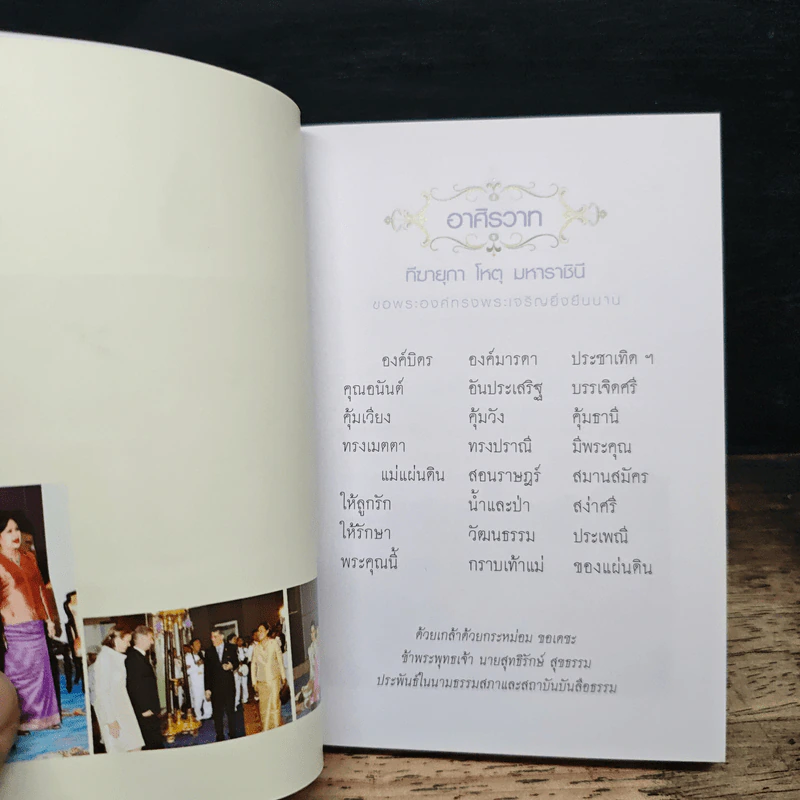 อาศิรวาท
ทีฆายุกา โหตุ มหาราชินี
ขอพระองค์ทรงพระเจริญยิ่งยืนนาน
องค์บิตร องค์มารดา ประชาเทิด ฯ
คุณอนันต์ อันประเสริฐ บรรเจิดศรี
คุ้มเวียง คุ้มวัง คุ้มธานี
ทรงเมตตา ทรงปราณี มีพระคุณ
แม่แผ่นดิน สอนราษฎร์ สมานสมัคร
ให้ลูกรัก น้ำและป่า สง่าศรี
ให้รักษา วัฒนธรรม ประเพณี
พระคุณนี้ กราบเท้าแม่ ของแผ่นดิน
ด้วยเกล้าด้วยกระหม่อม ขอเดชะ
ข้าพระพุทธเจ้า นายสุทธิรักษ์ สุขธรรม
ประพันธ์ในนามธรรมสภาและสถาบันบันลือธรรม